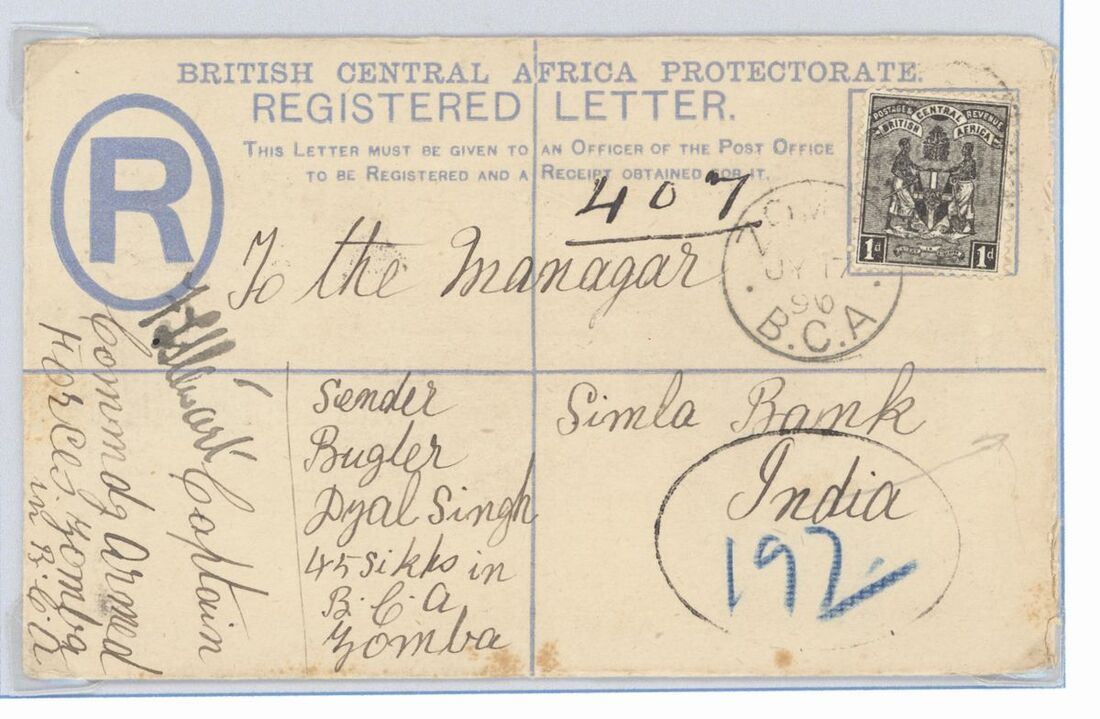 BRITISH CENTRAL AFRICA PROTECTORATE.
REGISTERED LETTER.
THIS LETTER MUST BE GIVEN TO AN OFFICER OF THE POST OFFICE
TO BE REGISTERED AND A RECEIPT OBTAINED FOR IT.
R
POSTAGE REVENUE
BRITISH CENTRAL AFRICA
1d 1d
407
JY 17
96
B.C.A
To the Managar
Simla Bank
India
192
Sender
Bugler
Dyal Singh
45 Sikhs in
B. C. A
Zomba
Captain
Commdg armed
Forces. Zomba
in B. C. A